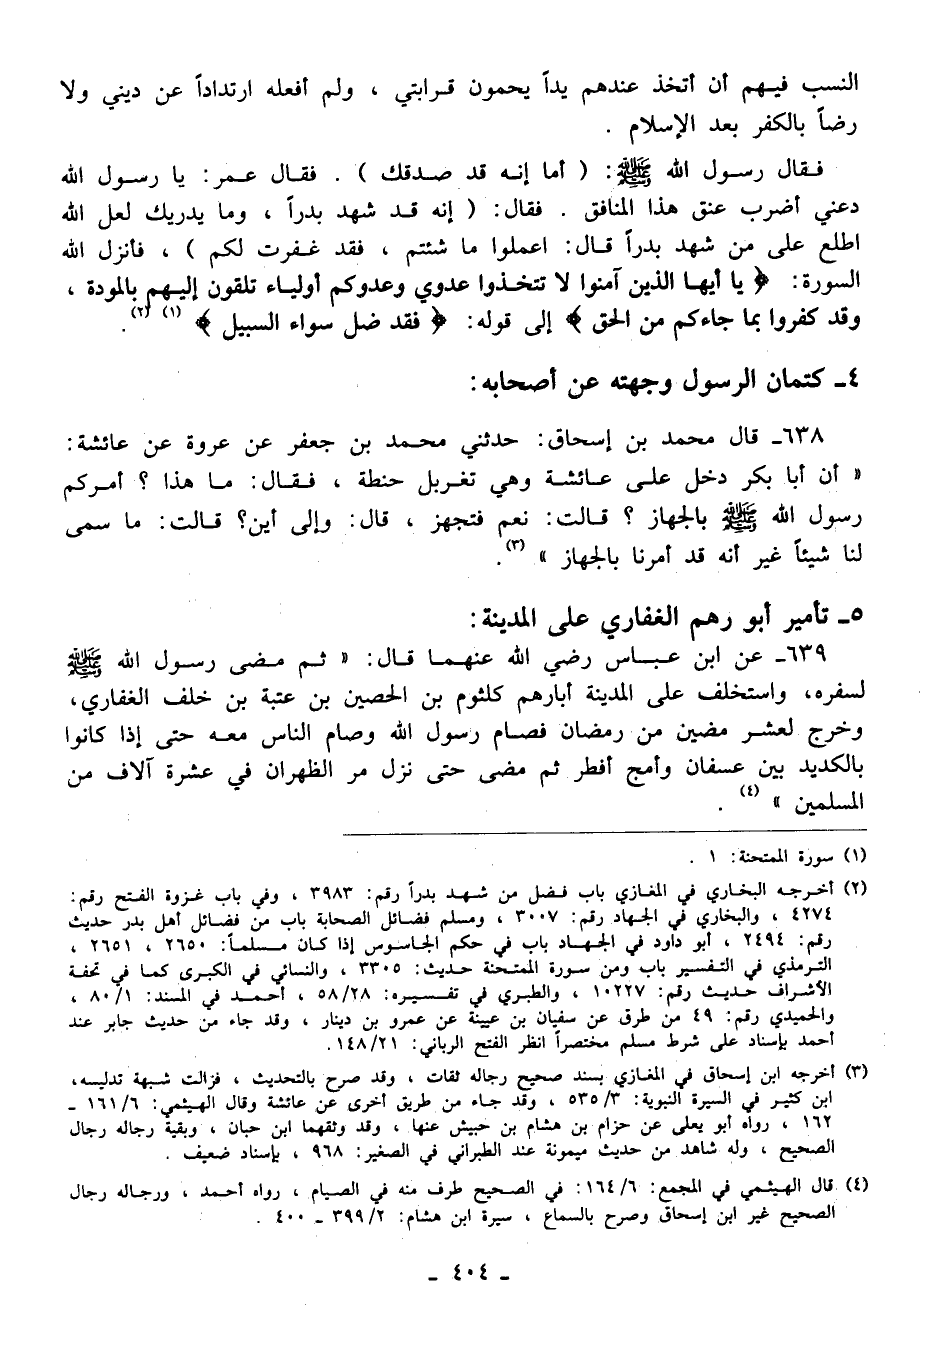 النسب فيهم أن أتخذ عندهم يداً يحمون قرابتي ، ولم أفعله ارتداداً عن ديني ولا
رضاً بالكفر بعد الإسلام .
فقال رسول الله ﷺ: ( أما إنه قد صدقك ) . فقال عمر: يا رسول الله
دعني أضرب عنق هذا المنافق . فقال: ( إنه قد شهد بدراً ، وما يدريك لعل الله
اطلع على من شهد بدراً قال: اعملوا ما شئتم ، فقد غفرت لكم ) ، فأنزل الله
السورة: ﴿ يا أيها الذين آمنوا لا تتخذوا عدوي وعدوكم أولياء تلقون إليهم بالمودة ،
وقد كفروا بما جاءكم من الحق ﴾ إلى قوله: ﴿ فقد ضل سواء السبيل ﴾ (١) (٢).
٤ـ كتمان الرسول وجهته عن أصحابه:
٦٣٨ـ قال محمد بن إسحاق: حدثني محمد بن جعفر عن عروة عن عائشة:
« أن أبا بكر دخل على عائشة وهي تغربل حنطة ، فقال: ما هذا ؟ أمركم
رسول الله ﷺ بالجهاز ؟ قالت: نعم فتجهز ، قال: وإلى أين؟ قالت: ما سمى
لنا شيئاً غير أنه قد أمرنا بالجهاز » (٣).
٥ـ تأمير أبو رهم الغفاري على المدينة:
٦٣٩ـ عن ابن عباس رضي الله عنهما قال: « ثم مضى رسول الله ﷺ
لسفره، واستخلف على المدينة أبارهم كلثوم بن الحصين بن عتبة بن خلف الغفاري،
وخرج لعشر مضين من رمضان فصام رسول الله وصام الناس معه حتى إذا كانوا
بالكديد بين عسفان وأمج أفطر ثم مضى حتى نزل مر الظهران في عشرة آلاف من
المسلمين » (٤) .
(١) سورة الممتحنة: ١ .
(٢) أخرجه البخاري في المغازي باب فضل من شهد بدراً رقم: ٣٩٨٣ ، وفي باب غزوة الفتح رقم:
٤٢٧٤ ، والبخاري في الجهاد رقم: ٣٠٠٧ ، ومسلم فضائل الصحابة باب من فضائل أهل بدر حديث
رقم: ٢٤٩٤ ، أبو داود في الجهاد باب في حكم الجاسوس إذا كان مسلماً: ٢٦٥٠ ، ٢٦٥١ ،
الترمذي في التفسير باب ومن سورة الممتحنة حديث: ٣٣٠٥ ، والنسائي في الكبرى كما في تحفة
الأشراف حديث رقم: ١٠٢٢٧ ، والطبري في تفسيره: ٥٨/٢٨ ، أحمد في المسند: ٨٠/١ ،
والحميدي رقم: ٤٩ من طرق عن سفيان بن عيينة عن عمرو بن دينار ، وقد جاء من حديث جابر عند
أحمد بإسناد على شرط مسلم مختصراً انظر الفتح الرباني: ١٤٨/٢١.
(٣) أخرجه ابن إسحاق في المغازي بسند صحيح رجاله ثقات ، وقد صرح بالتحديث ، فزالت شبهة تدليسه،
ابن كثير في السيرة النبوية: ٥٣٥/٣ ، وقد جاء من طريق أخرى عن عائشة وقال الهيثمي: ١٦١/٦ ـ
١٦٢ ، رواه أبو يعلى عن حزام بن هشام بن حبيش عنها ، وقد وثقهما ابن حبان ، وبقية رجاله رجال
الصحيح ، وله شاهد من حديث ميمونة عند الطبراني في الصغير: ٩٦٨ ، بإسناد ضعيف .
(٤) قال الهيثمي في المجمع: ١٦٤/٦: في الصحيح طرف منه في الصيام ، رواه أحمد ، ورجاله رجال
الصحيح غير ابن إسحاق وصرح بالسماع ، سيرة ابن هشام: ٣٩٩/٢ ـ ٤٠٠ .
ـ ٤٠٤ ـ